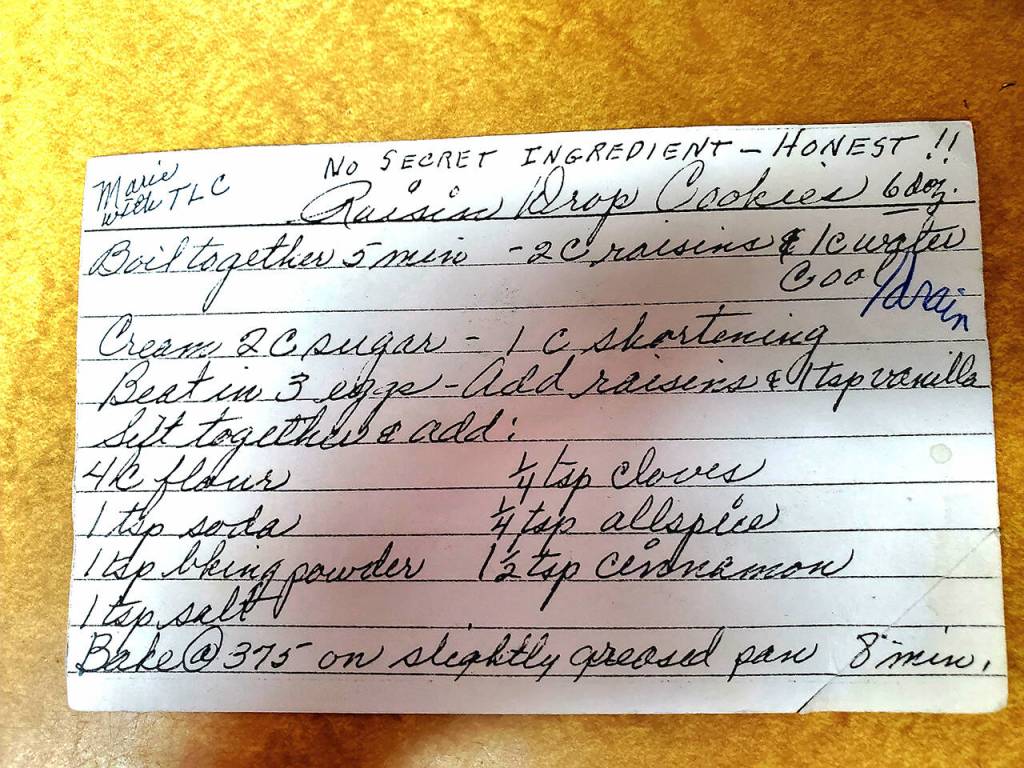 Marie
with TLC
No Secret Ingredient - Honest!!
Raisin Drop Cookies 6 doz.
Boil together 5 min - 2 C raisins & 1 C water
Cool/drain
Cream 2 C sugar - 1 C shortening
Beat in 3 eggs - Add raisins & 1 tsp vanilla
Sift together & add:
4 C flour 1/4 tsp cloves
1 tsp soda 1/4 tsp allspice
1 tsp bking powder 1 1/2 tsp cinnamon
1 tsp salt
Bake @ 375 on slightly greased pan 8 min.